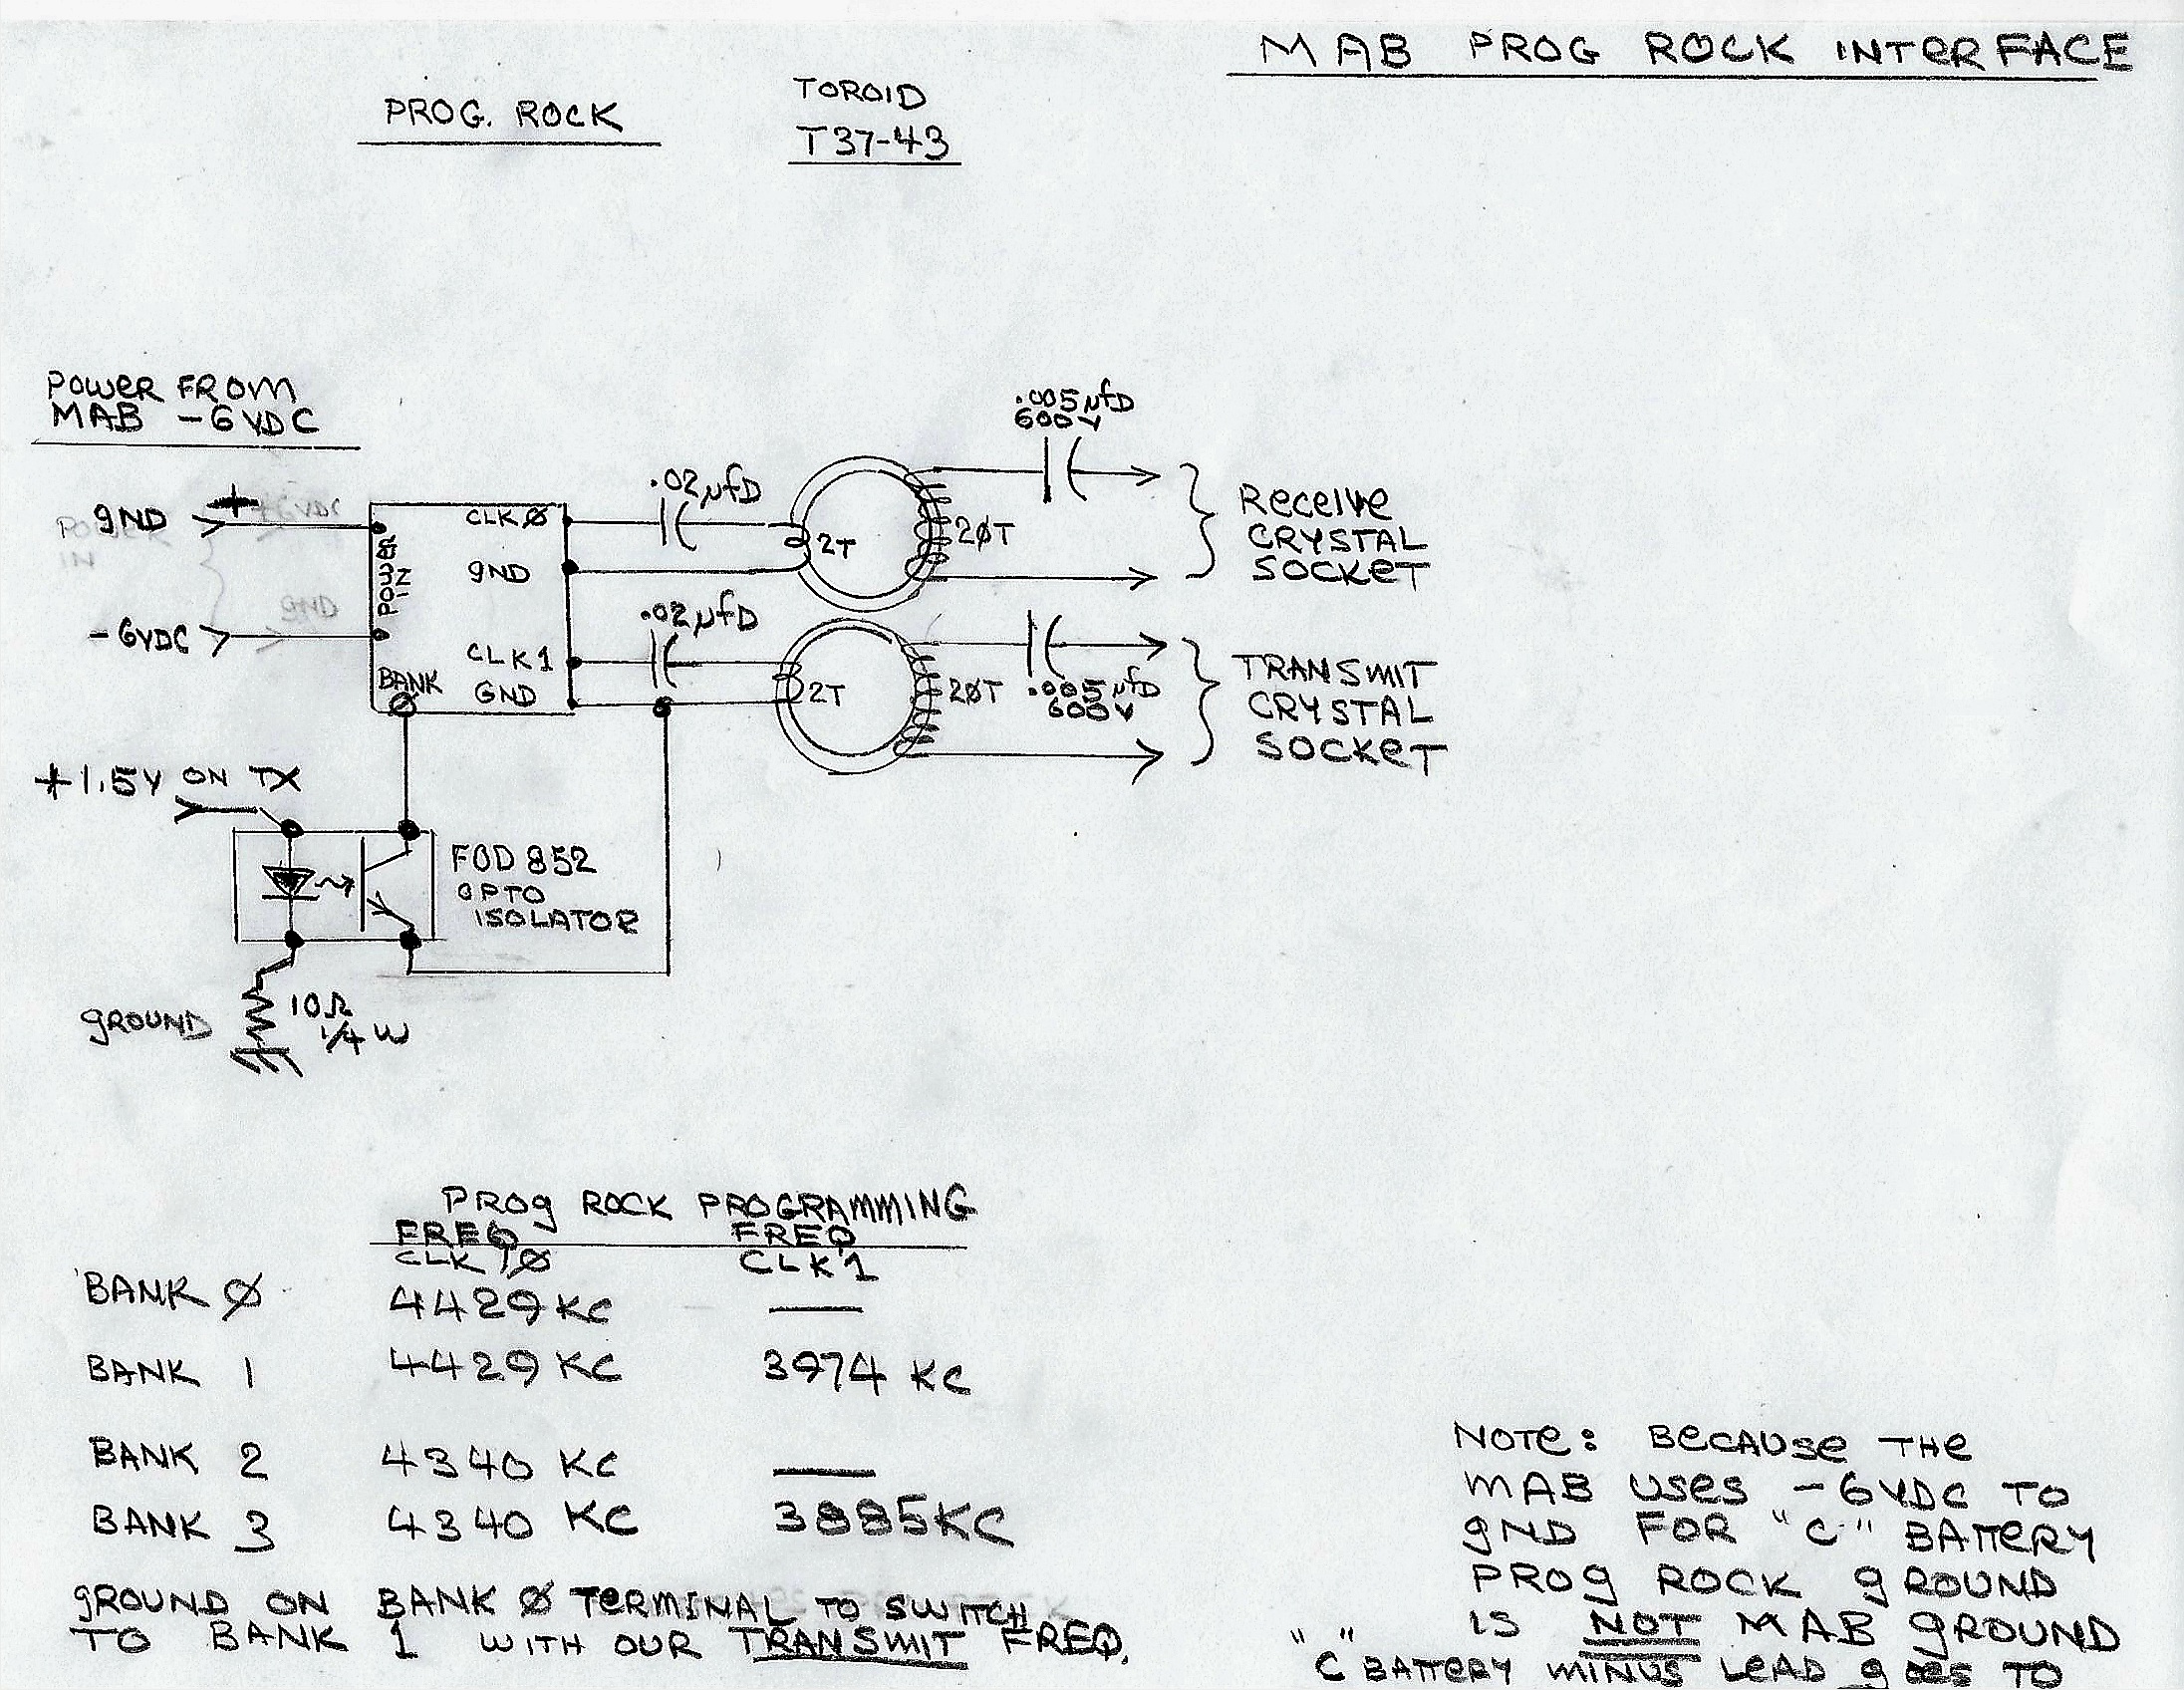 MAB PROG ROCK INTERFACE
PROG. ROCK
TOROID
T37-43
POWER FROM
MAB -6VDC
.005µfD
600V
.02µfD
GND
+
POWER
IN
CLKØ
GND
2T
2ØT
RECEIVE
CRYSTAL
SOCKET
GND
-6VDC
POWER IN
.02µfD
CLK1
GND
BANK
Ø
2T
2ØT
.005µfD
600V
TRANSMIT
CRYSTAL
SOCKET
+1.5V ON TX
FOD852
OPTO
ISOLATOR
GROUND
10Ω
1/4 W
PROG ROCK PROGRAMMING
FREQ FREQ
CLK Ø CLK1
BANK Ø 4429KC —
BANK 1 4429 KC 3974 KC
BANK 2 4340 KC —
BANK 3 4340 KC 3885KC
GROUND ON BANK Ø TERMINAL TO SWITCH
TO BANK 1 WITH OUR TRANSMIT FREQ.
NOTE: BECAUSE THE
MAB USES -6VDC TO
GND FOR "C" BATTERY
PROG ROCK GROUND
IS NOT MAB GROUND
"C" BATTERY MINUS LEAD GOES TO